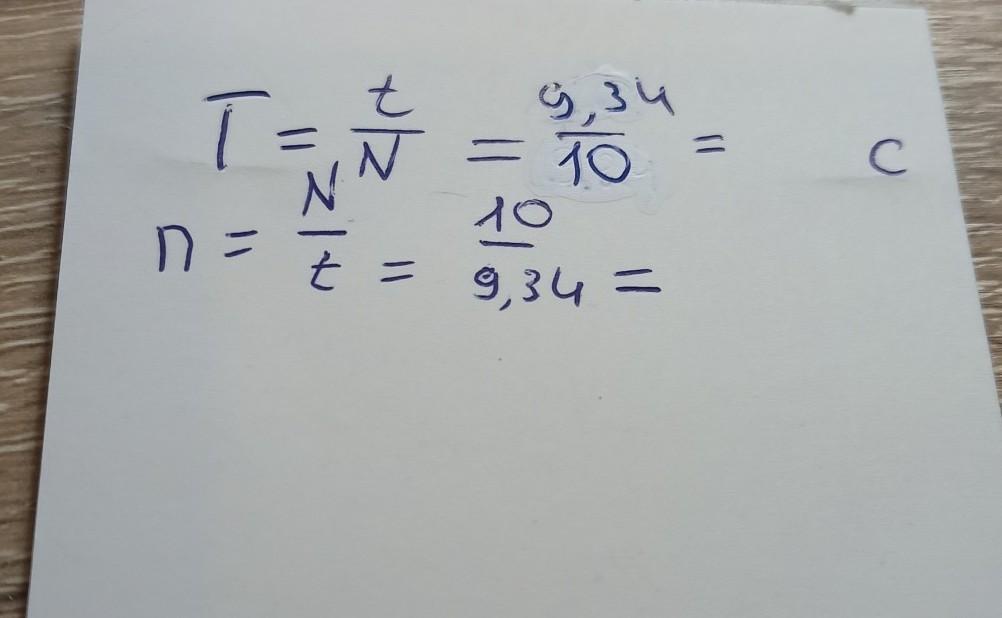 T = t/N = 9,34/10 = c
n = N/t = 10/9,34 =